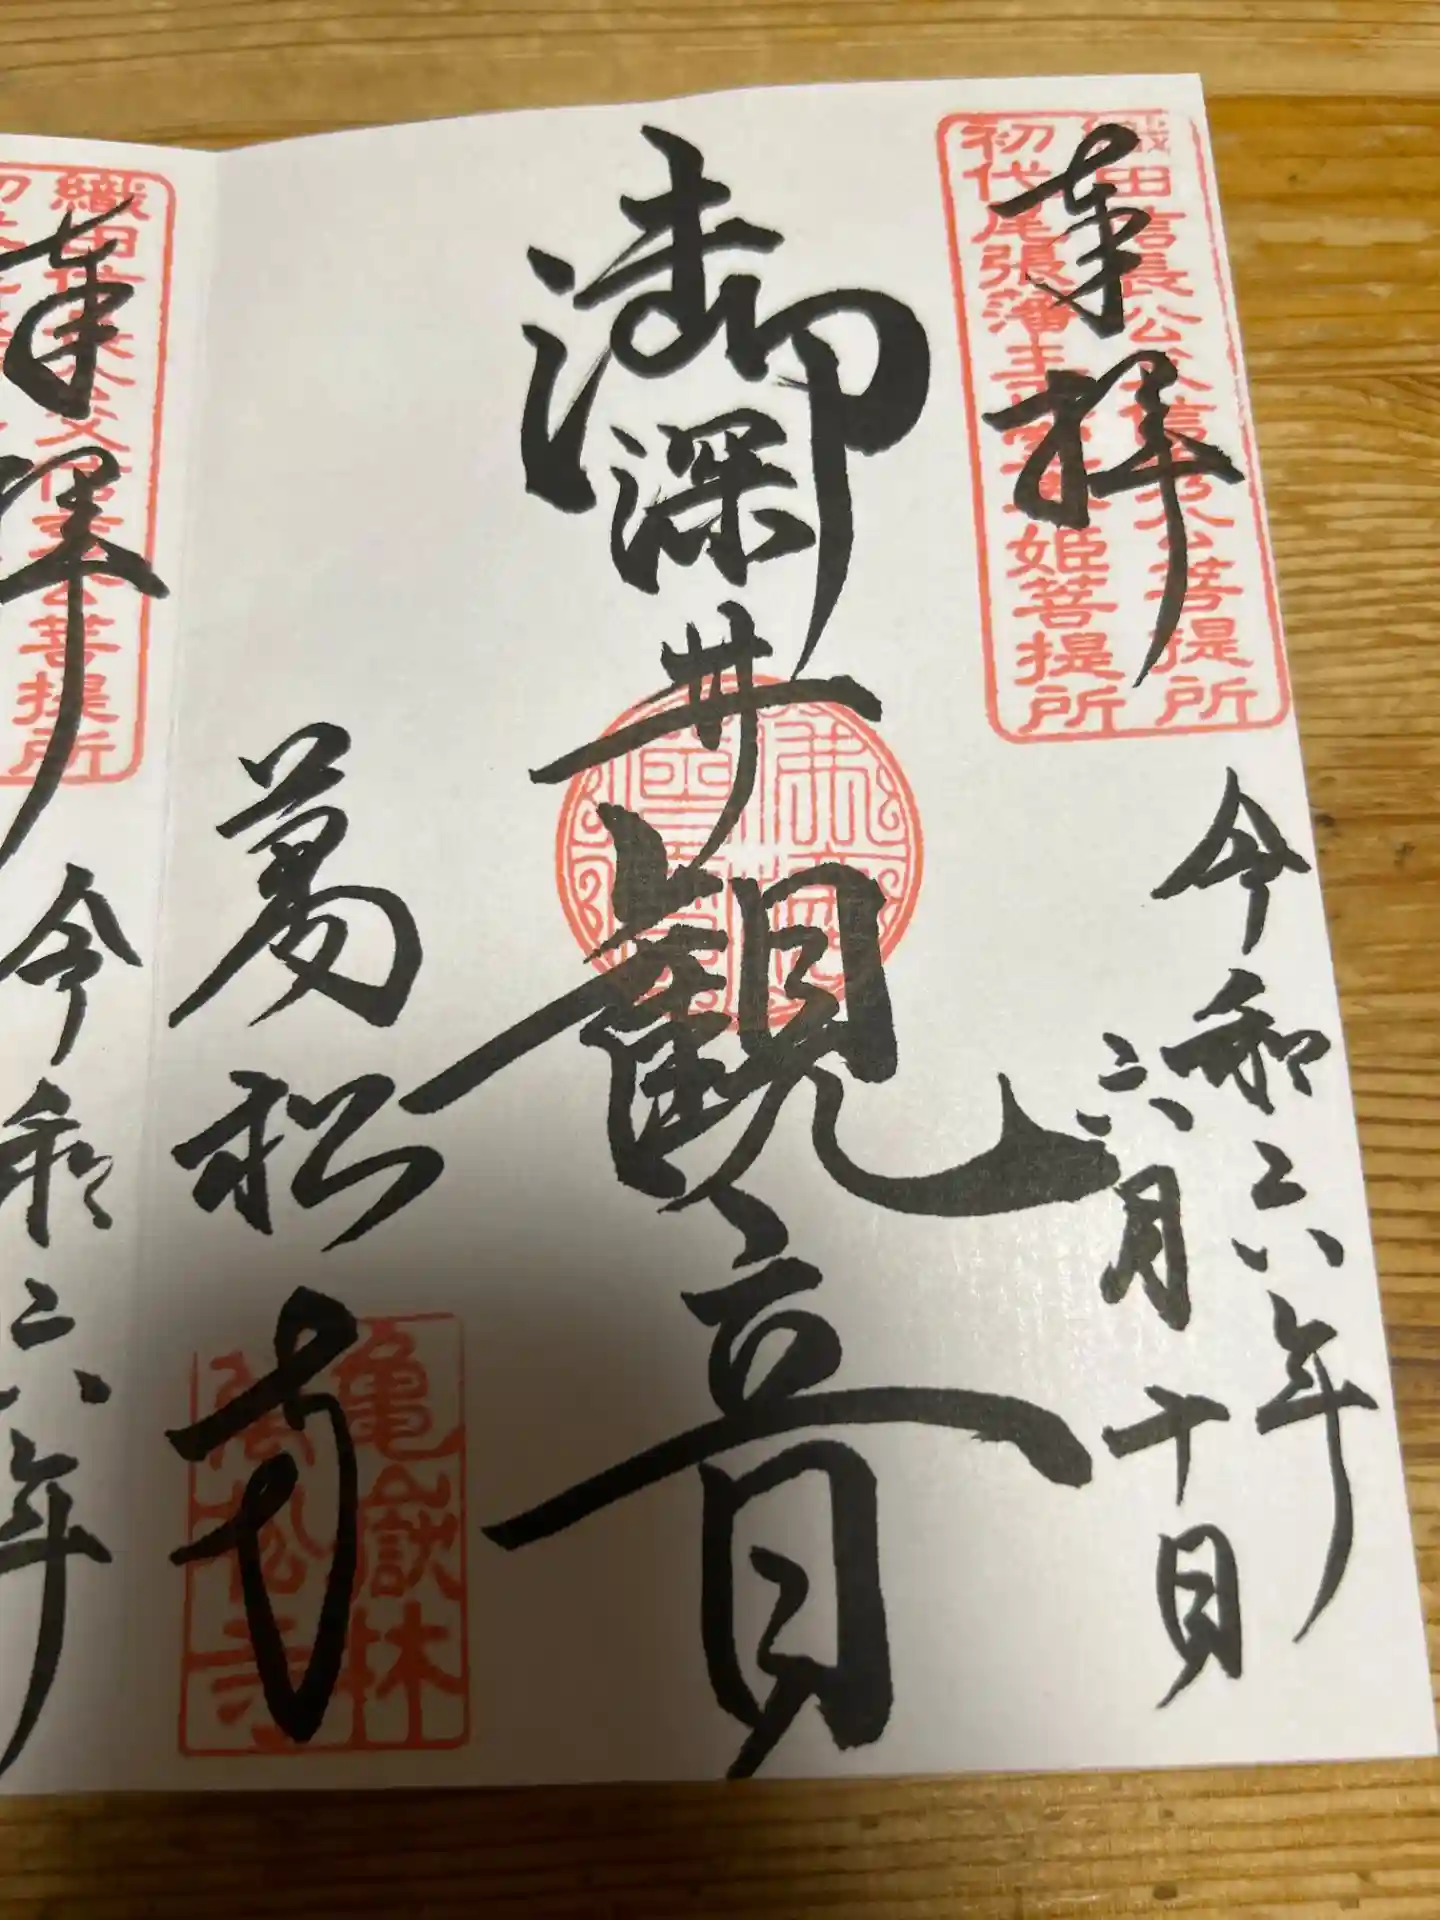 奉拝
織田信長公父信秀公菩提所
初代尾張藩主正室春姫菩提所
令和六年
六月十日
御深井観音
佛法僧寶
萬松寺
亀嶽林
萬松寺
奉拝
織田信長公父信秀公菩提所
令和六年